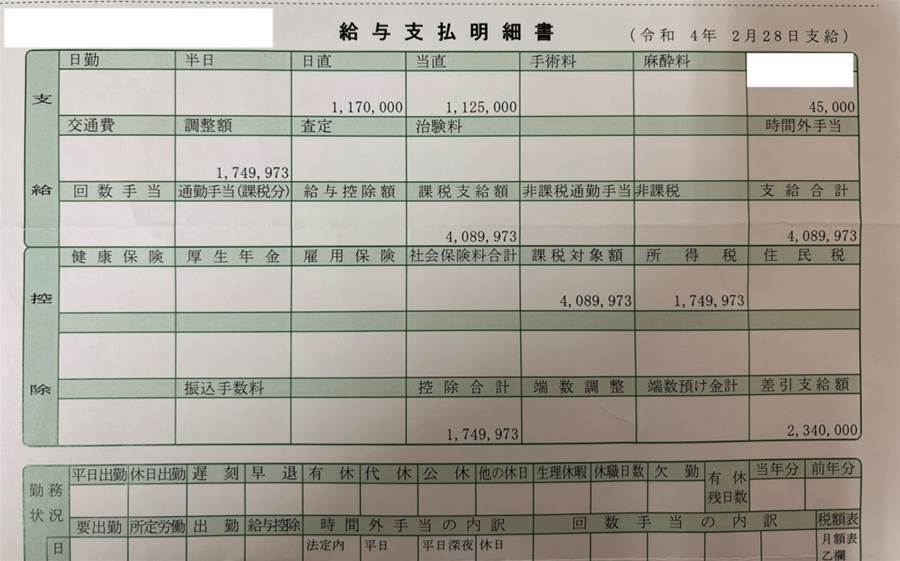 給与支払明細書
(令和 4年 2月28日支給)
支給
日勤 半日 日直 当直 手術料 麻酔料
1,170,000 1,125,000 45,000
交通費 調整額 査定 治験料 時間外手当
1,749,973
回数手当 通勤手当(課税分) 給与控除額 課税支給額 非課税通勤手当 非課税 支給合計
4,089,973 4,089,973
控除
健康保険 厚生年金 雇用保険 社会保険料合計 課税対象額 所得税 住民税
4,089,973 1,749,973
振込手数料 控除合計 端数調整 端数預け金計 差引支給額
1,749,973 2,340,000
勤務状況
平日出勤 休日出勤 遅刻 早退 有休 代休 公休 他の休日 生理休暇 休職日数 欠勤 有休残日数 当年分 前年分
要出勤 所定労働 出勤 給与控除 時間外手当の内訳 回数手当の内訳 税額表
日 法定内 平日 平日深夜 休日 月額表
乙欄